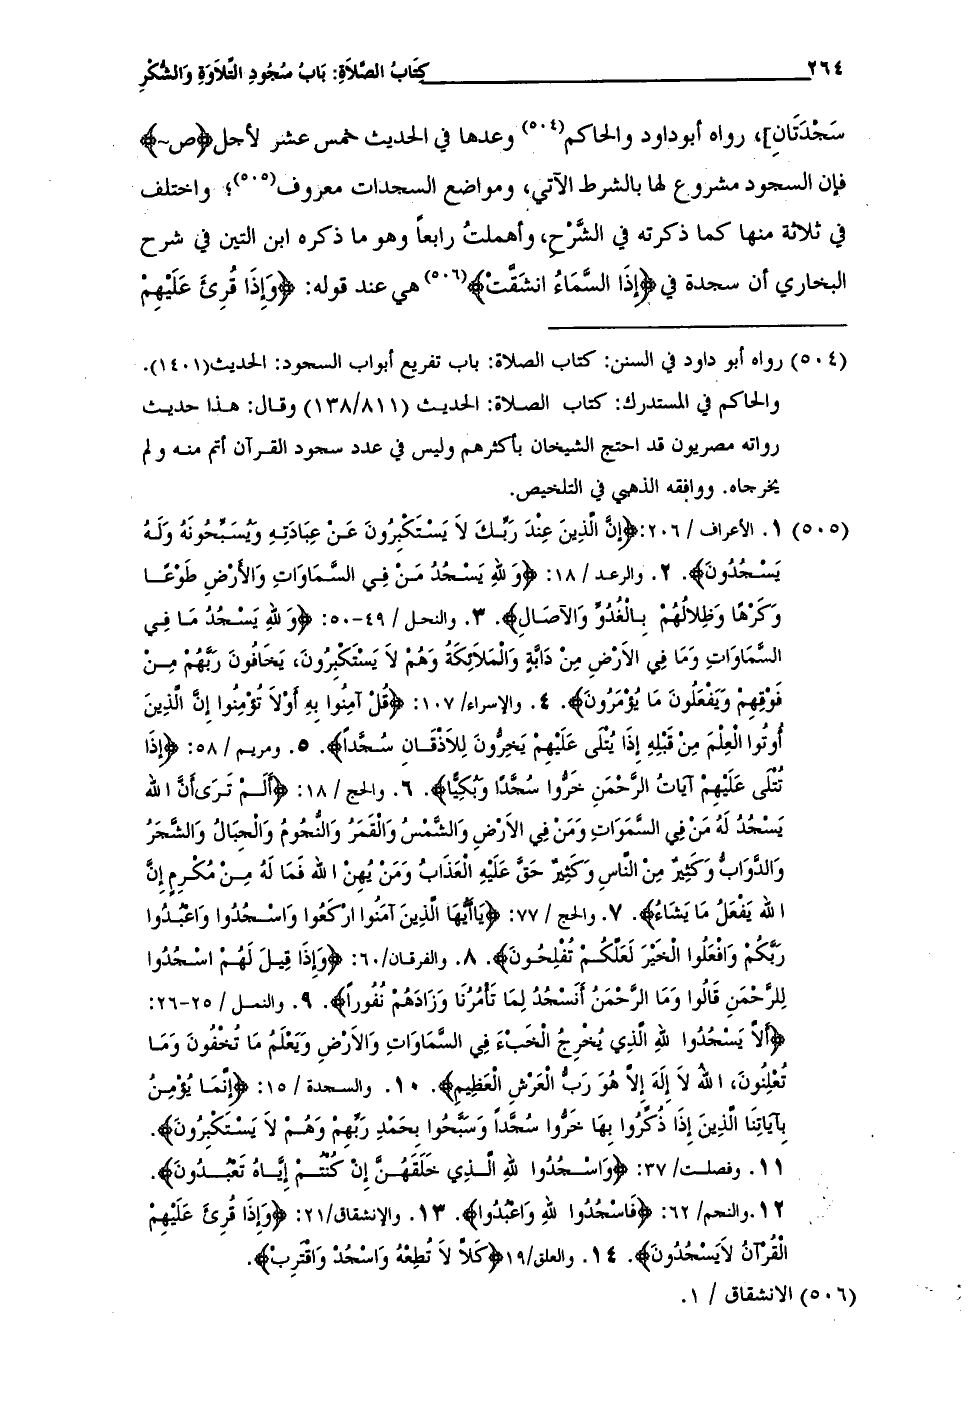 ٢٦٤ كِتَابُ الصَّلاَةِ: بَابُ سُجُودِ التِّلاَوَةِ وَالشُّكْرِ
سَجْدَتَانِ]، رواه أبوداود والحاكم(٥٠٤) وعدها في الحديث خمس عشر لأجل﴿ص~﴾
فإن السجود مشروع لها بالشرط الآتي، ومواضع السجدات معروف(٥٠٥)؛ واختلف
في ثلاثة منها كما ذكرته في الشَّرْحِ، وأهملتُ رابعاً وهو ما ذكره ابن التين في شرح
البخاري أن سجدة في ﴿إِذَا السَّمَاءُ انشَقَّتْ﴾(٥٠٦) هي عند قوله: ﴿وَإِذَا قُرِئَ عَلَيْهِمْ
(٥٠٤) رواه أبو داود في السنن: كتاب الصلاة: باب تفريع أبواب السجود: الحديث(١٤٠١).
والحاكم في المستدرك: كتاب الصلاة: الحديث (١٣٨/٨١١) وقال: هذا حديث
رواته مصريون قد احتج الشيخان بأكثرهم وليس في عدد سجود القرآن أتم منه ولم
يخرجاه. ووافقه الذهبي في التلخيص.
(٥٠٥) ١. الأعراف / ٢٠٦:﴿إِنَّ الَّذِينَ عِنْدَ رَبِّكَ لاَ يَسْتَكْبِرُونَ عَنْ عِبَادَتِهِ وَيُسَبِّحُونَهُ وَلَهُ
يَسْجُدُونَ﴾. ٢. والرعد / ١٨: ﴿وَلِلهِ يَسْجُدُ مَنْ فِي السَّمَاوَاتِ وَالأَرْضِ طَوْعًا
وَكَرْهًا وَظِلاَلُهُمْ بِالْغُدُوِّ وَالآصَالِ﴾. ٣. والنحل / ٤٩-٥٠: ﴿وَلِلهِ يَسْجُدُ مَا فِي
السَّمَاوَاتِ وَمَا فِي الأَرْضِ مِنْ دَابَّةٍ وَالْمَلاَئِكَةُ وَهُمْ لاَ يَسْتَكْبِرُونَ، يَخَافُونَ رَبَّهُمْ مِنْ
فَوْقِهِمْ وَيَفْعَلُونَ مَا يُؤْمَرُونَ﴾. ٤. والإسراء/ ١٠٧: ﴿قُلْ آمِنُوا بِهِ أَوْلاَ تُؤْمِنُوا إِنَّ الَّذِينَ
أُوتُوا الْعِلْمَ مِنْ قَبْلِهِ إِذَا يُتْلَى عَلَيْهِمْ يَخِرُّونَ لِلأَذْقَانِ سُجَّداً﴾. ٥. ومريم / ٥٨: ﴿إِذَا
تُتْلَى عَلَيْهِمْ آيَاتُ الرَّحْمَنِ خَرُّوا سُجَّدًا وَبُكِيًّا﴾. ٦. والحج / ١٨: ﴿أَلَمْ تَرَى أَنَّ اللهَ
يَسْجُدُ لَهُ مَنْ فِي السَّمَوَاتِ وَمَنْ فِي الأَرْضِ وَالشَّمْسُ وَالْقَمَرُ وَالنُّجُومُ وَالْجِبَالُ وَالشَّجَرُ
وَالدَّوَابُّ وَكَثِيرٌ مِنْ النَّاسِ وَكَثِيرٌ حَقَّ عَلَيْهِ الْعَذَابُ وَمَنْ يُهِنْ اللهُ فَمَا لَهُ مِنْ مُكْرِمٍ إِنَّ
اللهَ يَفْعَلُ مَا يَشَاءُ﴾. ٧. والحج / ٧٧: ﴿يَاأَيُّهَا الَّذِينَ آمَنُوا ارْكَعُوا وَاسْجُدُوا وَاعْبُدُوا
رَبَّكُمْ وَافْعَلُوا الْخَيْرَ لَعَلَّكُمْ تُفْلِحُونَ﴾. ٨. والفرقان/٦٠: ﴿وَإِذَا قِيلَ لَهُمْ اسْجُدُوا
لِلرَّحْمَنِ قَالُوا وَمَا الرَّحْمَنُ أَنَسْجُدُ لِمَا تَأْمُرُنَا وَزَادَهُمْ نُفُوراً﴾. ٩. والنمل / ٢٥-٢٦:
﴿أَلاَّ يَسْجُدُوا لِلهِ الَّذِي يُخْرِجُ الْخَبْءَ فِي السَّمَاوَاتِ وَالأَرْضِ وَيَعْلَمُ مَا تُخْفُونَ وَمَا
تُعْلِنُونَ، اللهُ لاَ إِلَهَ إِلاَّ هُوَ رَبُّ الْعَرْشِ الْعَظِيمِ﴾. ١٠. والسجدة / ١٥: ﴿إِنَّمَا يُؤْمِنُ
بِآيَاتِنَا الَّذِينَ إِذَا ذُكِّرُوا بِهَا خَرُّوا سُجَّداً وَسَبَّحُوا بِحَمْدِ رَبِّهِمْ وَهُمْ لاَ يَسْتَكْبِرُونَ﴾.
١١. وفصلت/ ٣٧: ﴿وَاسْجُدُوا لِلهِ الَّذِي خَلَقَهُنَّ إِنْ كُنْتُمْ إِيَّاهُ تَعْبُدُونَ﴾.
١٢.والنجم/ ٦٢: ﴿فَاسْجُدُوا لِلهِ وَاعْبُدُوا﴾. ١٣. والإنشقاق/٢١: ﴿وَإِذَا قُرِئَ عَلَيْهِمْ
الْقُرْآنُ لاَيَسْجُدُونَ﴾. ١٤. والعلق/١٩﴿كَلاَّ لاَ تُطِعْهُ وَاسْجُدْ وَاقْتَرِبْ﴾.
(٥٠٦) الانشقاق / ١.